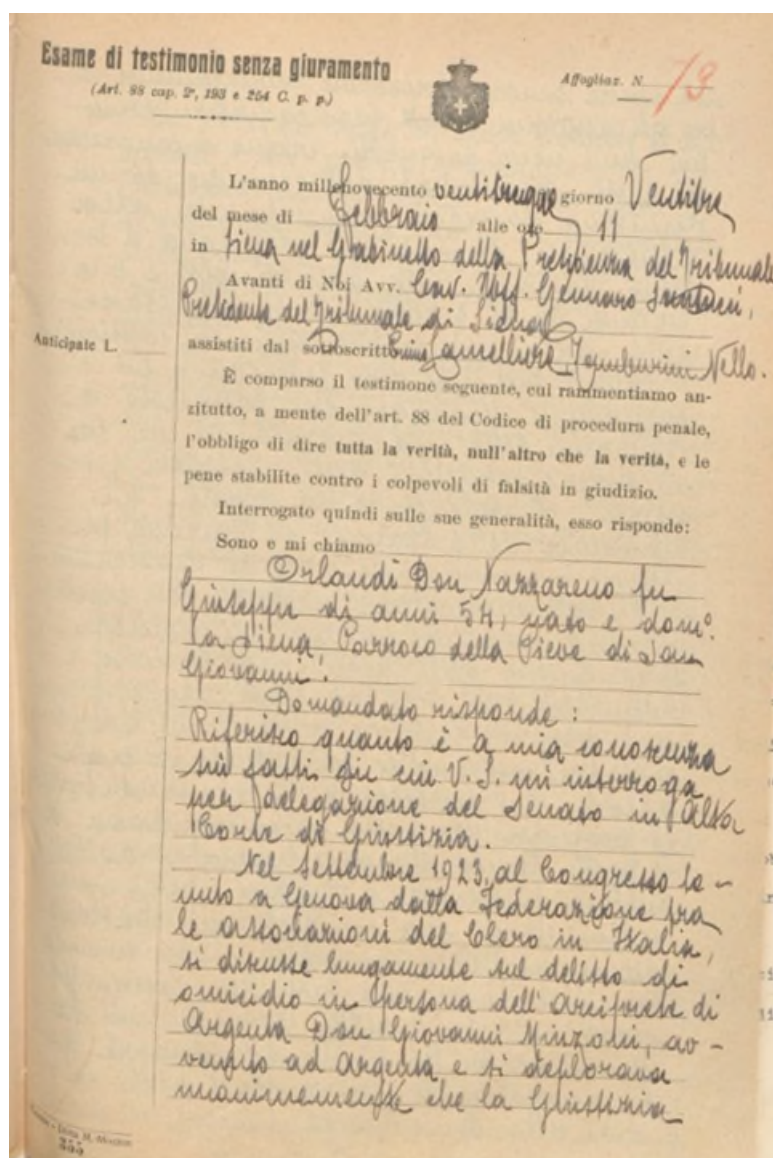 Esame di testimonio senza giuramento
(Art. 88 cap. 2º, 193 e 254 C. p. p.)
Affogliaz. N. 73
L'anno millenovecento venticinque giorno Ventitre
del mese di Febbraio alle ore 11
in Siena nel Gabinetto della Presidenza del Tribunale
Avanti di Noi Avv. Cav. Uff. Gennaro
Presidente del Tribunale di Siena
Anticipate L.
assistiti dal sottoscritto Cancelliere Tamburini Nello.
È comparso il testimone seguente, cui rammentiamo an-
zitutto, a mente dell'art. 88 del Codice di procedura penale,
l'obbligo di dire tutta la verità, null'altro che la verità, e le
pene stabilite contro i colpevoli di falsità in giudizio.
Interrogato quindi sulle sue generalità, esso risponde:
Sono e mi chiamo
Orlandi Don Nazzareno fu
Giuseppe di anni 54, nato e domº.
a Siena, Parroco della Pieve di San
Giovanni.
Domandato risponde:
Riferisco quanto è a mia conoscenza
sui fatti su cui V. S. mi interroga
per delegazione del Senato in Alta
Corte di Giustizia.
Nel Settembre 1923, al Congresso te-
nuto a Genova dalla Federazione fra
le associazioni del Clero in Italia,
si discusse lungamente sul delitto di
omicidio in persona dell'Arciprete di
Argenta Don Giovanni Minzoni, av-
venuto ad Argenta e si deplorava
unanimemente che la Giustizia
355